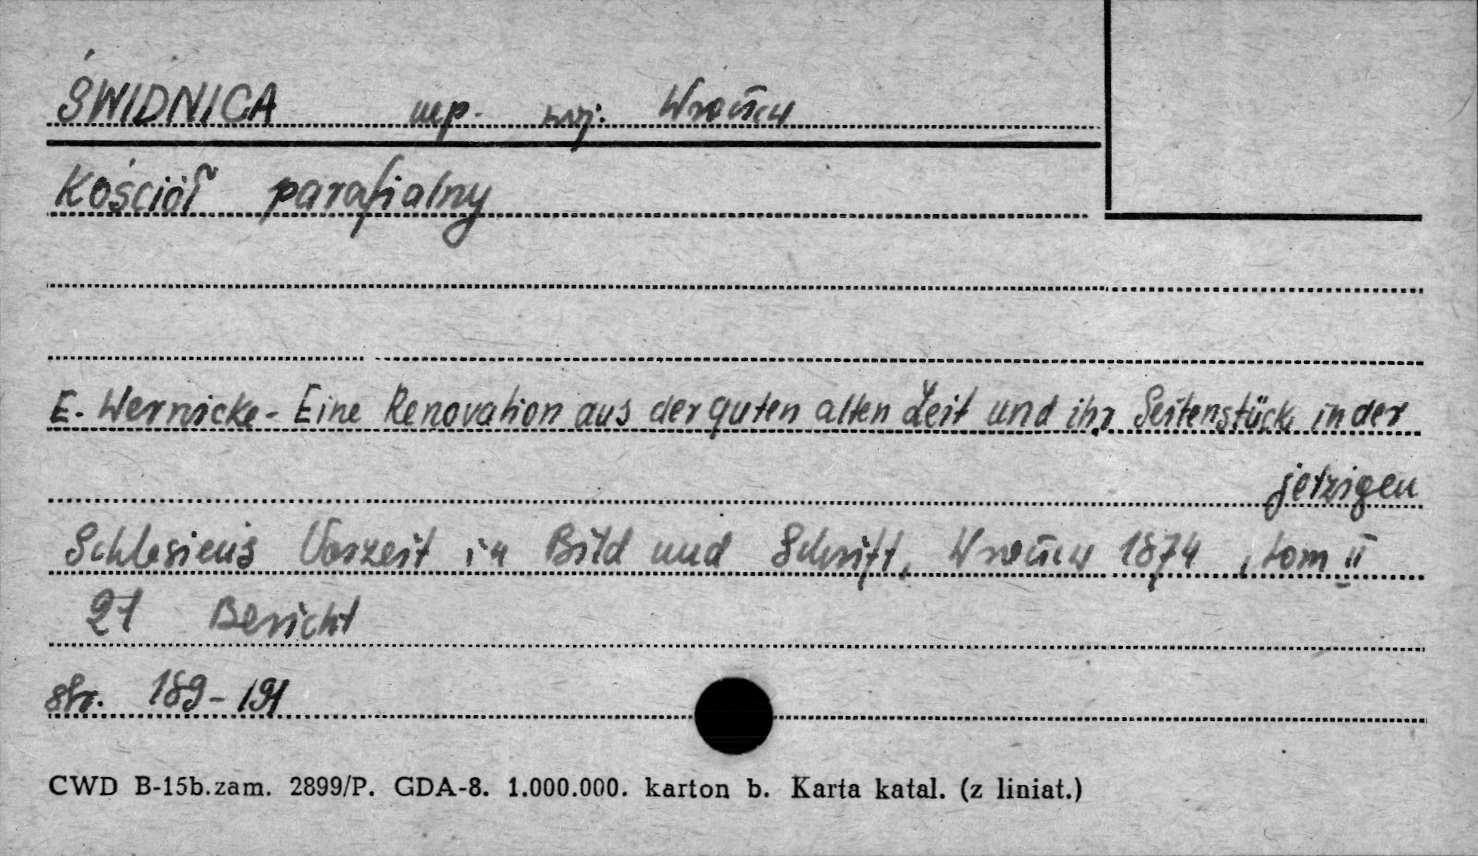 ŚWIDNICA mp. woj. Wrocław
Kościół parafialny
E. Wernicke - Eine Renovation aus der guten alten Zeit und ihr Seitenstück in der
jetzigen
Schlesiens Vorzeit in Bild und Schrift, Wrocław 1874, tom II
21 Bericht
str. 189-191
CWD B-15b.zam. 2899/P. GDA-8. 1.000.000. karton b. Karta katal. (z liniat.)